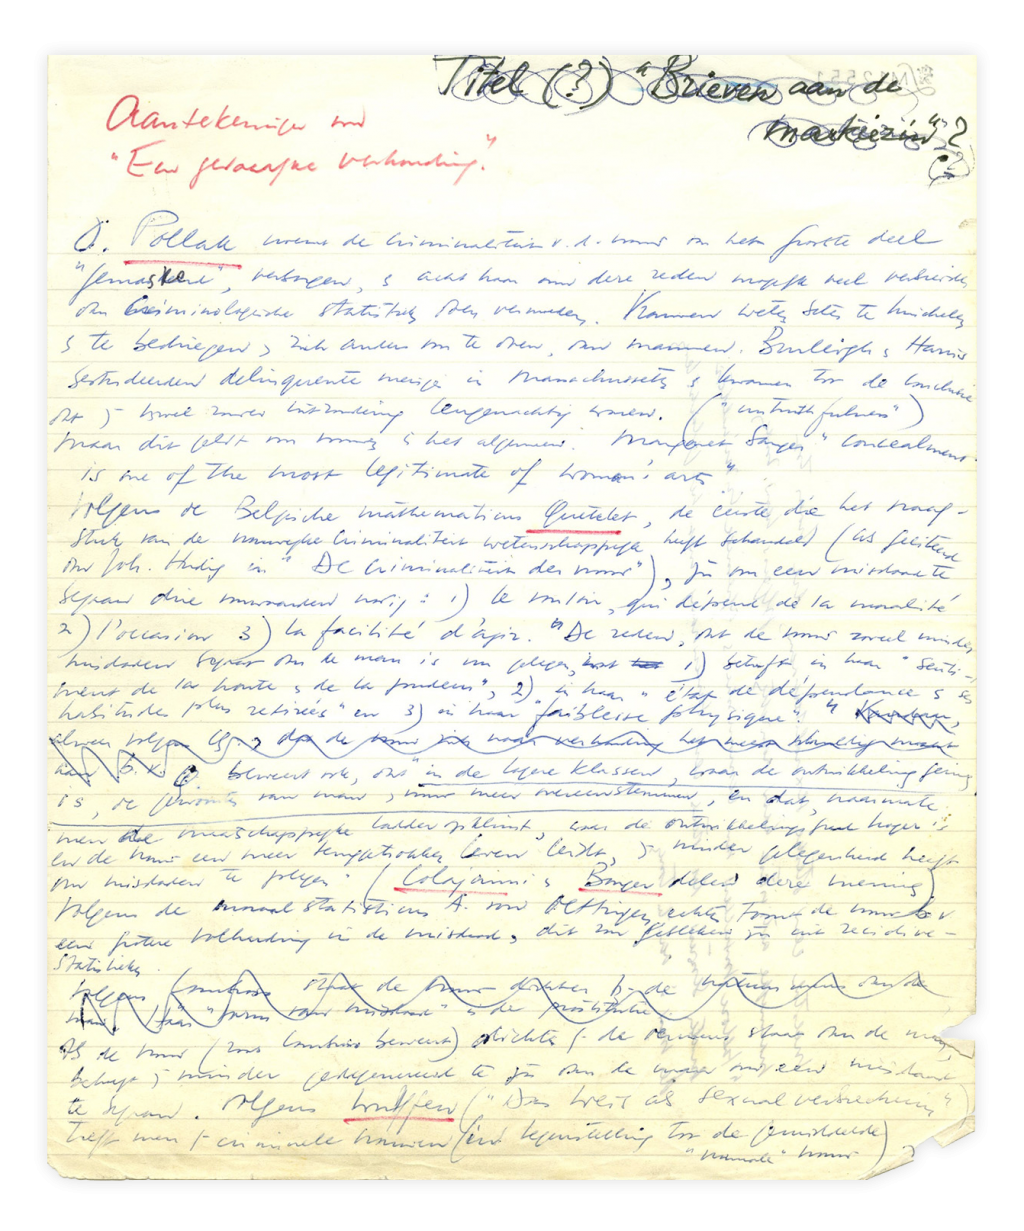 Titel (?) "Brieven aan de
markiezin"?
(??)
Aantekeningen voor
"Een gevaarlijke verhouding".
O. Pollak noemt de criminaliteit v.d. vrouw voor het grootste deel
"gemaskerd", verborgen, acht haar om deze reden mogelijk veel verbreider
dan criminologische statistieken doen vermoeden. Vrouwen weten iets te
te bedriegen zich anders voor te doen, dan mannen. Burleigh & Harris
bestudeerden delinquente meisjes in Massachussetts & kwamen tot de conclusie
dat zij zonder uitzondering leugenachtig waren. ("untruthfulness")
maar dit geldt voor vrouwen in het algemeen. Margaret Sanger "concealment
is one of the most legitimate of woman's arts"
Volgens de Belgische mathematicus Quetelet, de eerste die het vraag-
stuk van de vrouwelijke criminaliteit wetenschappelijk heeft behandeld (als geciteerd
door Joh. Hudig in "De criminaliteit der vrouw"), zijn om een misdaad te
begaan drie voorwaarden nodig: 1) le vouloir, qui dépend de la moralité
2) l'occasion 3) la facilité d'agir. "De reden, dat de vrouw zoveel minder
misdaden begaat dan de man is 1) betreft in haar "senti-
ment de la honte & de la pudeur", 2) in haar "état de dépendance & ses
habitudes plus retirées" en 3) in haar "faiblesse physique".
alweer volgens
Q beweert ook, dat "in de lagere klassen, waar de ontwikkeling gering
is, de van man & vrouw meer overeenstemmen, en dat, naarmate
men de maatschappelijke ladder opklimt, waar de ontwikkelingsgraad hoger is
en de vrouw een meer teruggetrokken leven leidt, zij minder gelegenheid heeft
om misdaden te plegen." (Colajanni & Bonger delen deze mening)
Volgens de moraalstatisticus A. von Oettingen echter toont de vrouw
een grotere volharding in de misdaad, dit zou gebleken zijn uit recidive-
statistieken.
Volgens Lombroso staat de vrouw dichter bij de natuur dan de
man. Haar "vorm van misdaad" is de prostitutie
Als de vrouw (zoals Lombroso beweert) dichter bij de natuur staat dan de man,
behoeft zij minder gedegenereerd te zijn dan de man om een misdaad
te begaan. Volgens Wulffen ("Das Weib als Sexualverbrecherin")
treft men bij criminele vrouwen (in tegenstelling tot de gemiddelde)
"normale" vrouw